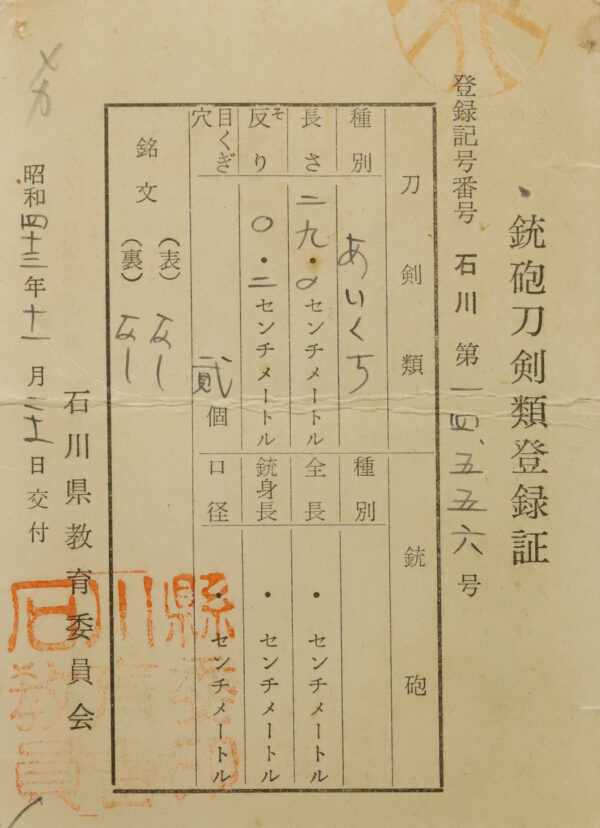 銃砲刀剣類登録証
登録記号番号 石川 第一四、五五六号
刀剣類
種別 あいくち
長さ 二九・〇センチメートル
反り そ 〇・二センチメートル
目くぎ穴 貮個
銘文
(表) なし
(裏) なし
銃砲
種別
全長 ・ センチメートル
銃身長 ・ センチメートル
口径 ・ センチメートル
昭和四十三年十一月二十日交付
石川県教育委員会
石川縣